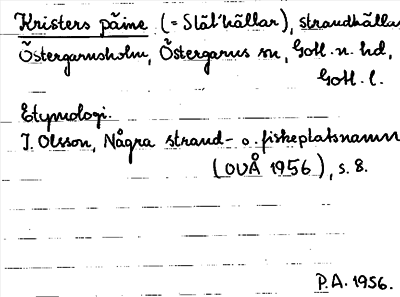 Kristers päine (= Slät'hällar), strandhällar
Östergarnsholm, Östergarns sn, Gotl. n. hd,
Gotl. l.
Etymologi.
I. Olsson, Några strand- o. fiskeplatsnamn
(OUÅ 1956), s. 8.
P.A. 1956.